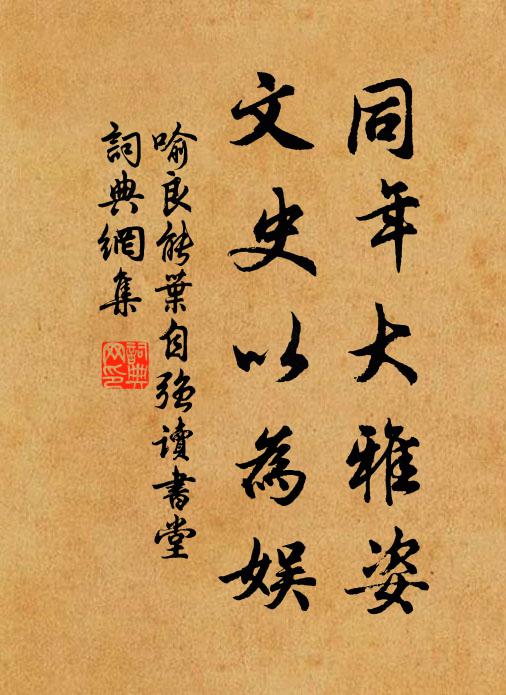 同年大雅姿
文史以為娱
喻良能葉自强讀書堂
詞典網集
詞典網印